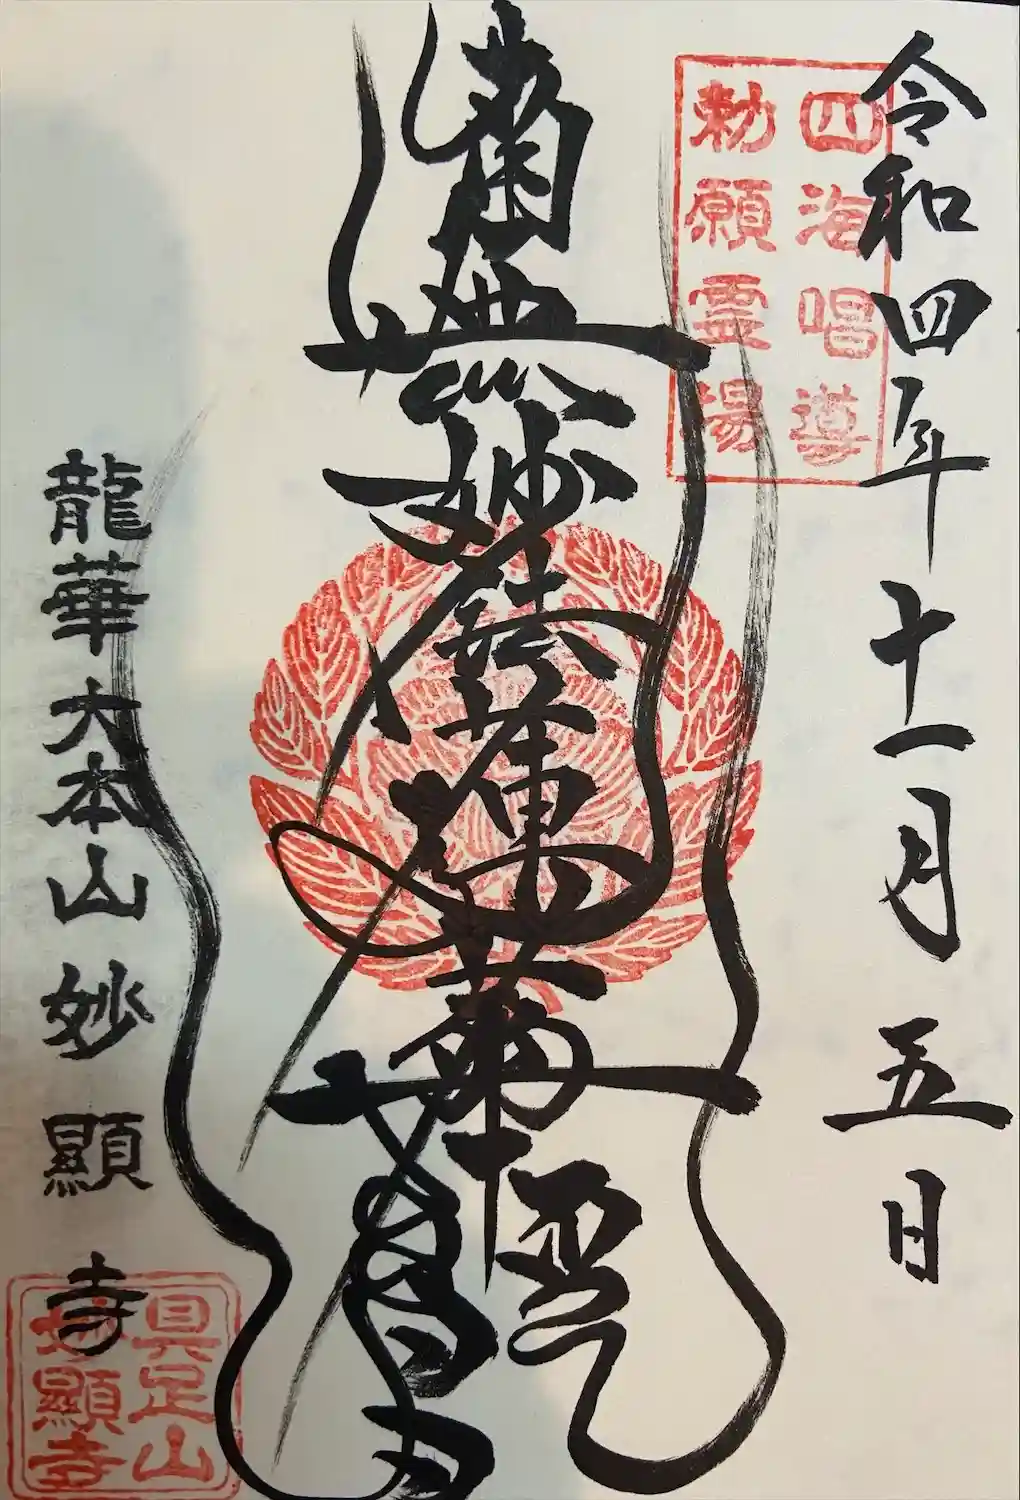 令和四年十一月五日
四海唱導
勅願霊場
南無妙法蓮華経
龍華 大本山 妙顯寺
具足山
妙顯寺